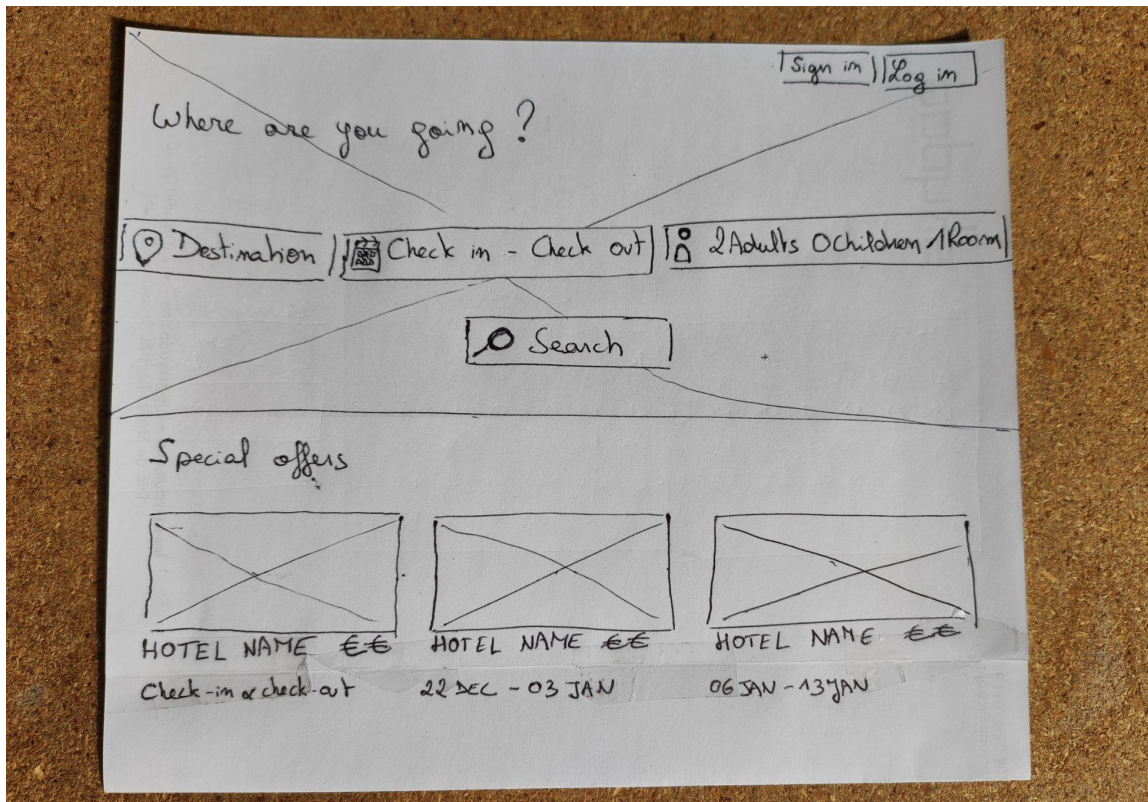 Sign in Log in
Where are you going?
Destination Check in - Check out 2 Adults 0 Children 1 Room
Search
Special offers
HOTEL NAME €€ HOTEL NAME €€ HOTEL NAME €€
Check-in & check-out 22 DEC - 03 JAN 06 JAN - 13 JAN